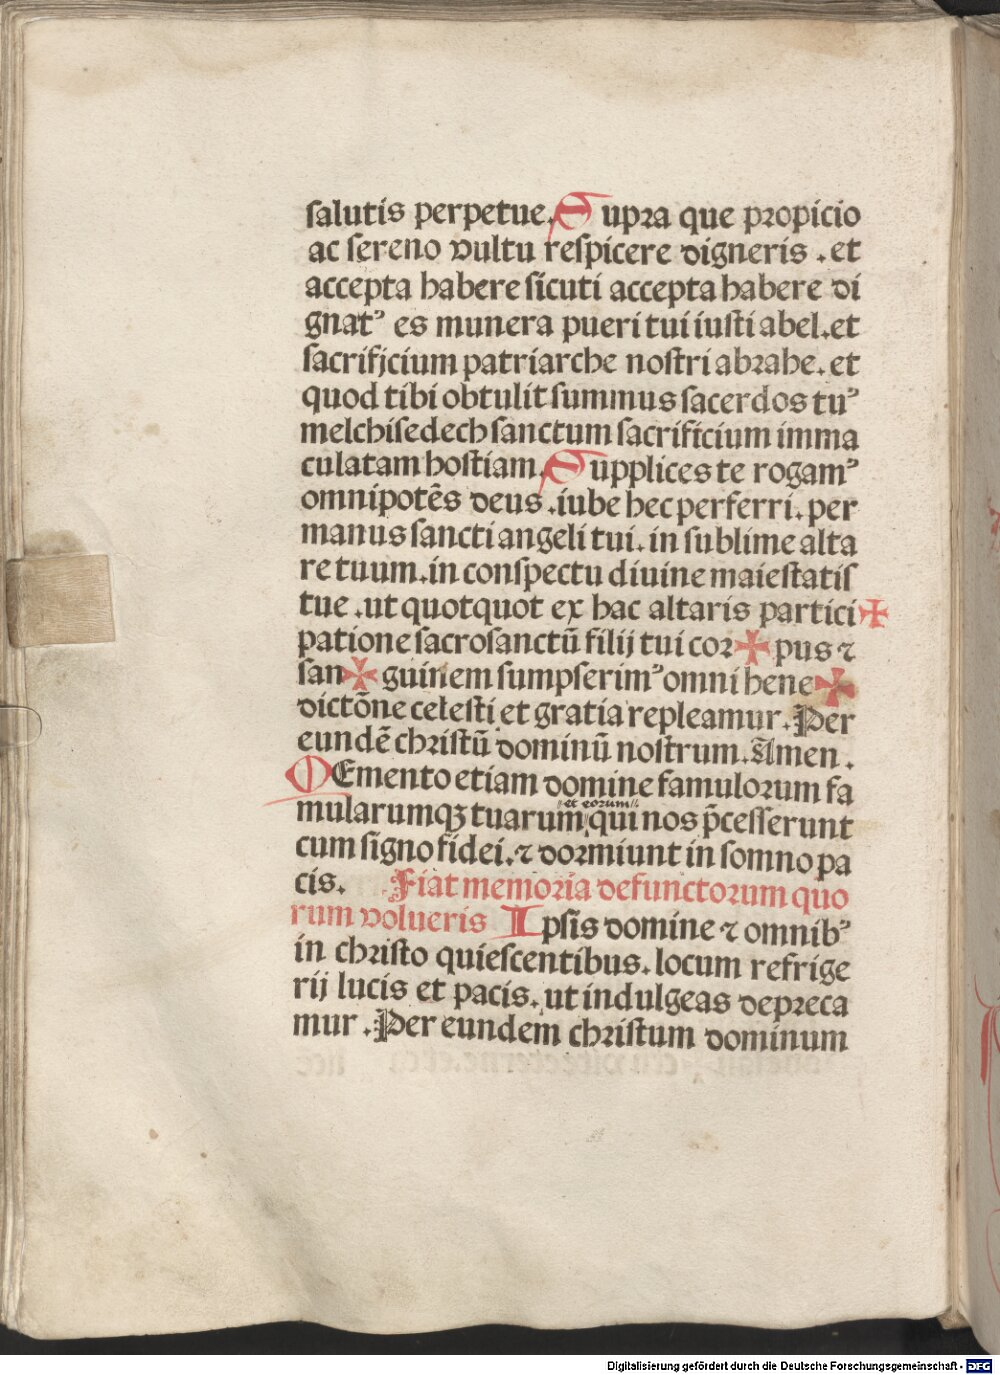 salutis perpetue. Supra que propicio
ac sereno vultu respicere digneris . et
accepta habere sicuti accepta habere di
gnatꝰ es munera pueri tui iusti abel. et
sacrificium patriarche nostri abrahe. et
quod tibi obtulit summus sacerdos tuꝰ
melchisedech sanctum sacrificium imma
culatam hostiam. Supplices te rogamꝰ
omnipotēs deus . iube hec perferri. per
manus sancti angeli tui. in sublime alta
re tuum. in conspectu diuine maiestatis
tue . ut quotquot ex hac altaris partici ✠
patione sacrosanctū filij tui cor ✠ pus ⁊
san ✠ guinem sumpserimꝰ omni bene ✠
dictōne celesti et gratia repleamur. Per
eundē christū dominū nostrum. Amen .
MEmento etiam domine famulorum fa
mularumqꝫ tuarum et eorum qui nos p̄cesserunt
cum signo fidei. ⁊ dormiunt in somno pa
cis. Fiat memoria defunctorum quo
rum volueris Ipsis domine ⁊ omnibꝰ
in christo quiescentibus. locum refrige
rij lucis et pacis. ut indulgeas depreca
mur . Per eundem christum dominum
Digitalisierung gefördert durch die Deutsche Forschungsgemeinschaft - DFG